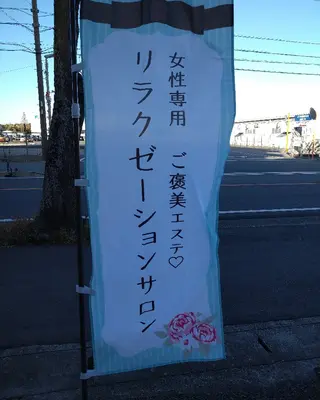 女性専用　ご褒美エステ♡
リラクゼーションサロン